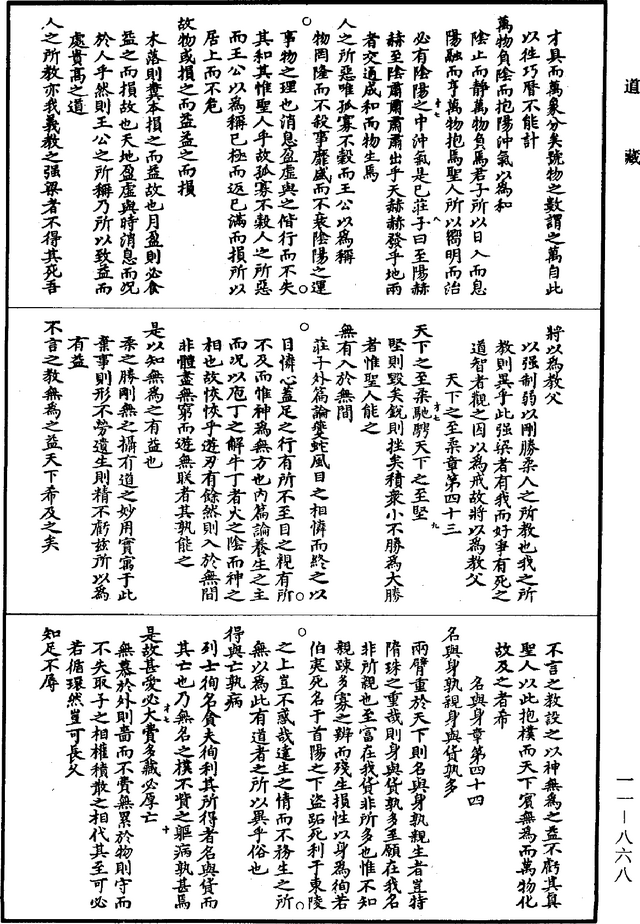 道藏
才具而萬象分矣號物之數謂之萬自此
以往巧曆不能計
萬物負陰而抱陽沖氣以為和
陰止而靜萬物負焉君子所以日入而息
陽融而亨萬物抱焉聖人所以嚮明而治
必有陰陽之中沖氣是已莊子曰至陽赫
赫至陰肅肅肅肅出乎天赫赫發乎地兩
者交通成和而物生焉
人之所惡唯孤寡不穀而王公以為稱
物罔隆而不殺事靡盛而不衰陰陽之運
事物之理也消息盈虛與之偕行而不失
其和其惟聖人乎故孤寡不穀人之所惡
而王公以為稱已極而返已滿而損所以
居上而不危
故物或損之而益益之而損
木落則糞本損之而益故也月盈則必食
益之而損故也天地盈虛與時消息而況
於人乎然則王公之所稱乃所以致益而
處貴高之道
人之所教亦我義教之强梁者不得其死吾
將以為教父
以强制弱以剛勝柔人之所教也我之所
教則異乎此强梁者有我而好爭有死之
道智者觀之因以為戒故將以為教父
天下之至柔章第四十三
天下之至柔馳騁天下之至堅
堅則毀矣銳則挫矣積衆小不勝為大勝
者惟聖人能之
無有入於無間
莊子外篇論夔蚿風目之相憐而終之以
目憐心蓋足之行有所不至目之視有所
不及而惟神為無方也內篇論養生之主
而況以庖丁之解牛丁者火之陰而神之
相也故恢恢乎遊刃有餘然則入於無間
非體盡無窮而遊無朕者其孰能之
是以知無為之有益也
柔之勝剛無之攝有道之妙用實寓于此
棄事則形不勞遺生則精不虧茲所以為
有益
不言之教無為之益天下希及之矣
不言之教設之以神無為之益不虧其真
聖人以此抱樸而天下賓無為而萬物化
故及之者希
名與身章第四十四
名與身孰親身與貨孰多
兩臂重於天下則名與身孰親生者豈特
隋珠之重哉則身與貨孰多至願在我名
非所親也至富在我貨非所多也惟不知
親踈多寡之辨而殘生損性以身為徇若
伯夷死名于首陽之下盜跖死利于東陵
之上豈不惑哉達生之情而不務生之所
無以為此有道者之所以異乎俗也
得與亡孰病
列士徇名貪夫徇利其所得者名與貨而
其亡也乃無名之樸不貲之軀病孰甚焉
是故甚愛必大費多藏必厚亡
無慕於外則嗇而不費無累於物則守而
不失取予之相權積散之相代其至可必
若循環然豈可長久
知足不辱
一一—八六八